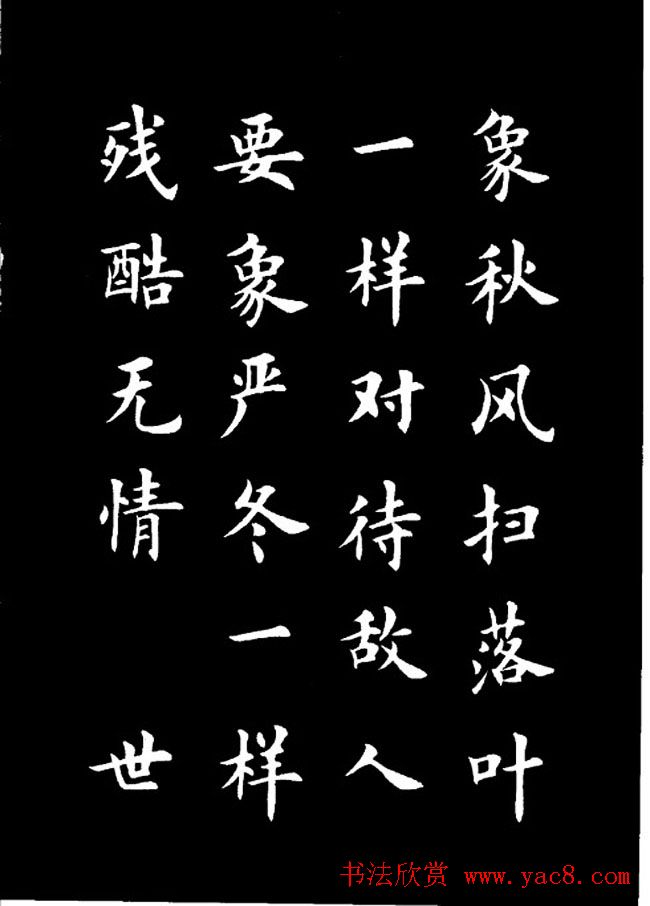 象秋风扫落叶
一样对待敌人
要象严冬一样
残酷无情 世
书法欣赏 www.yac8.com